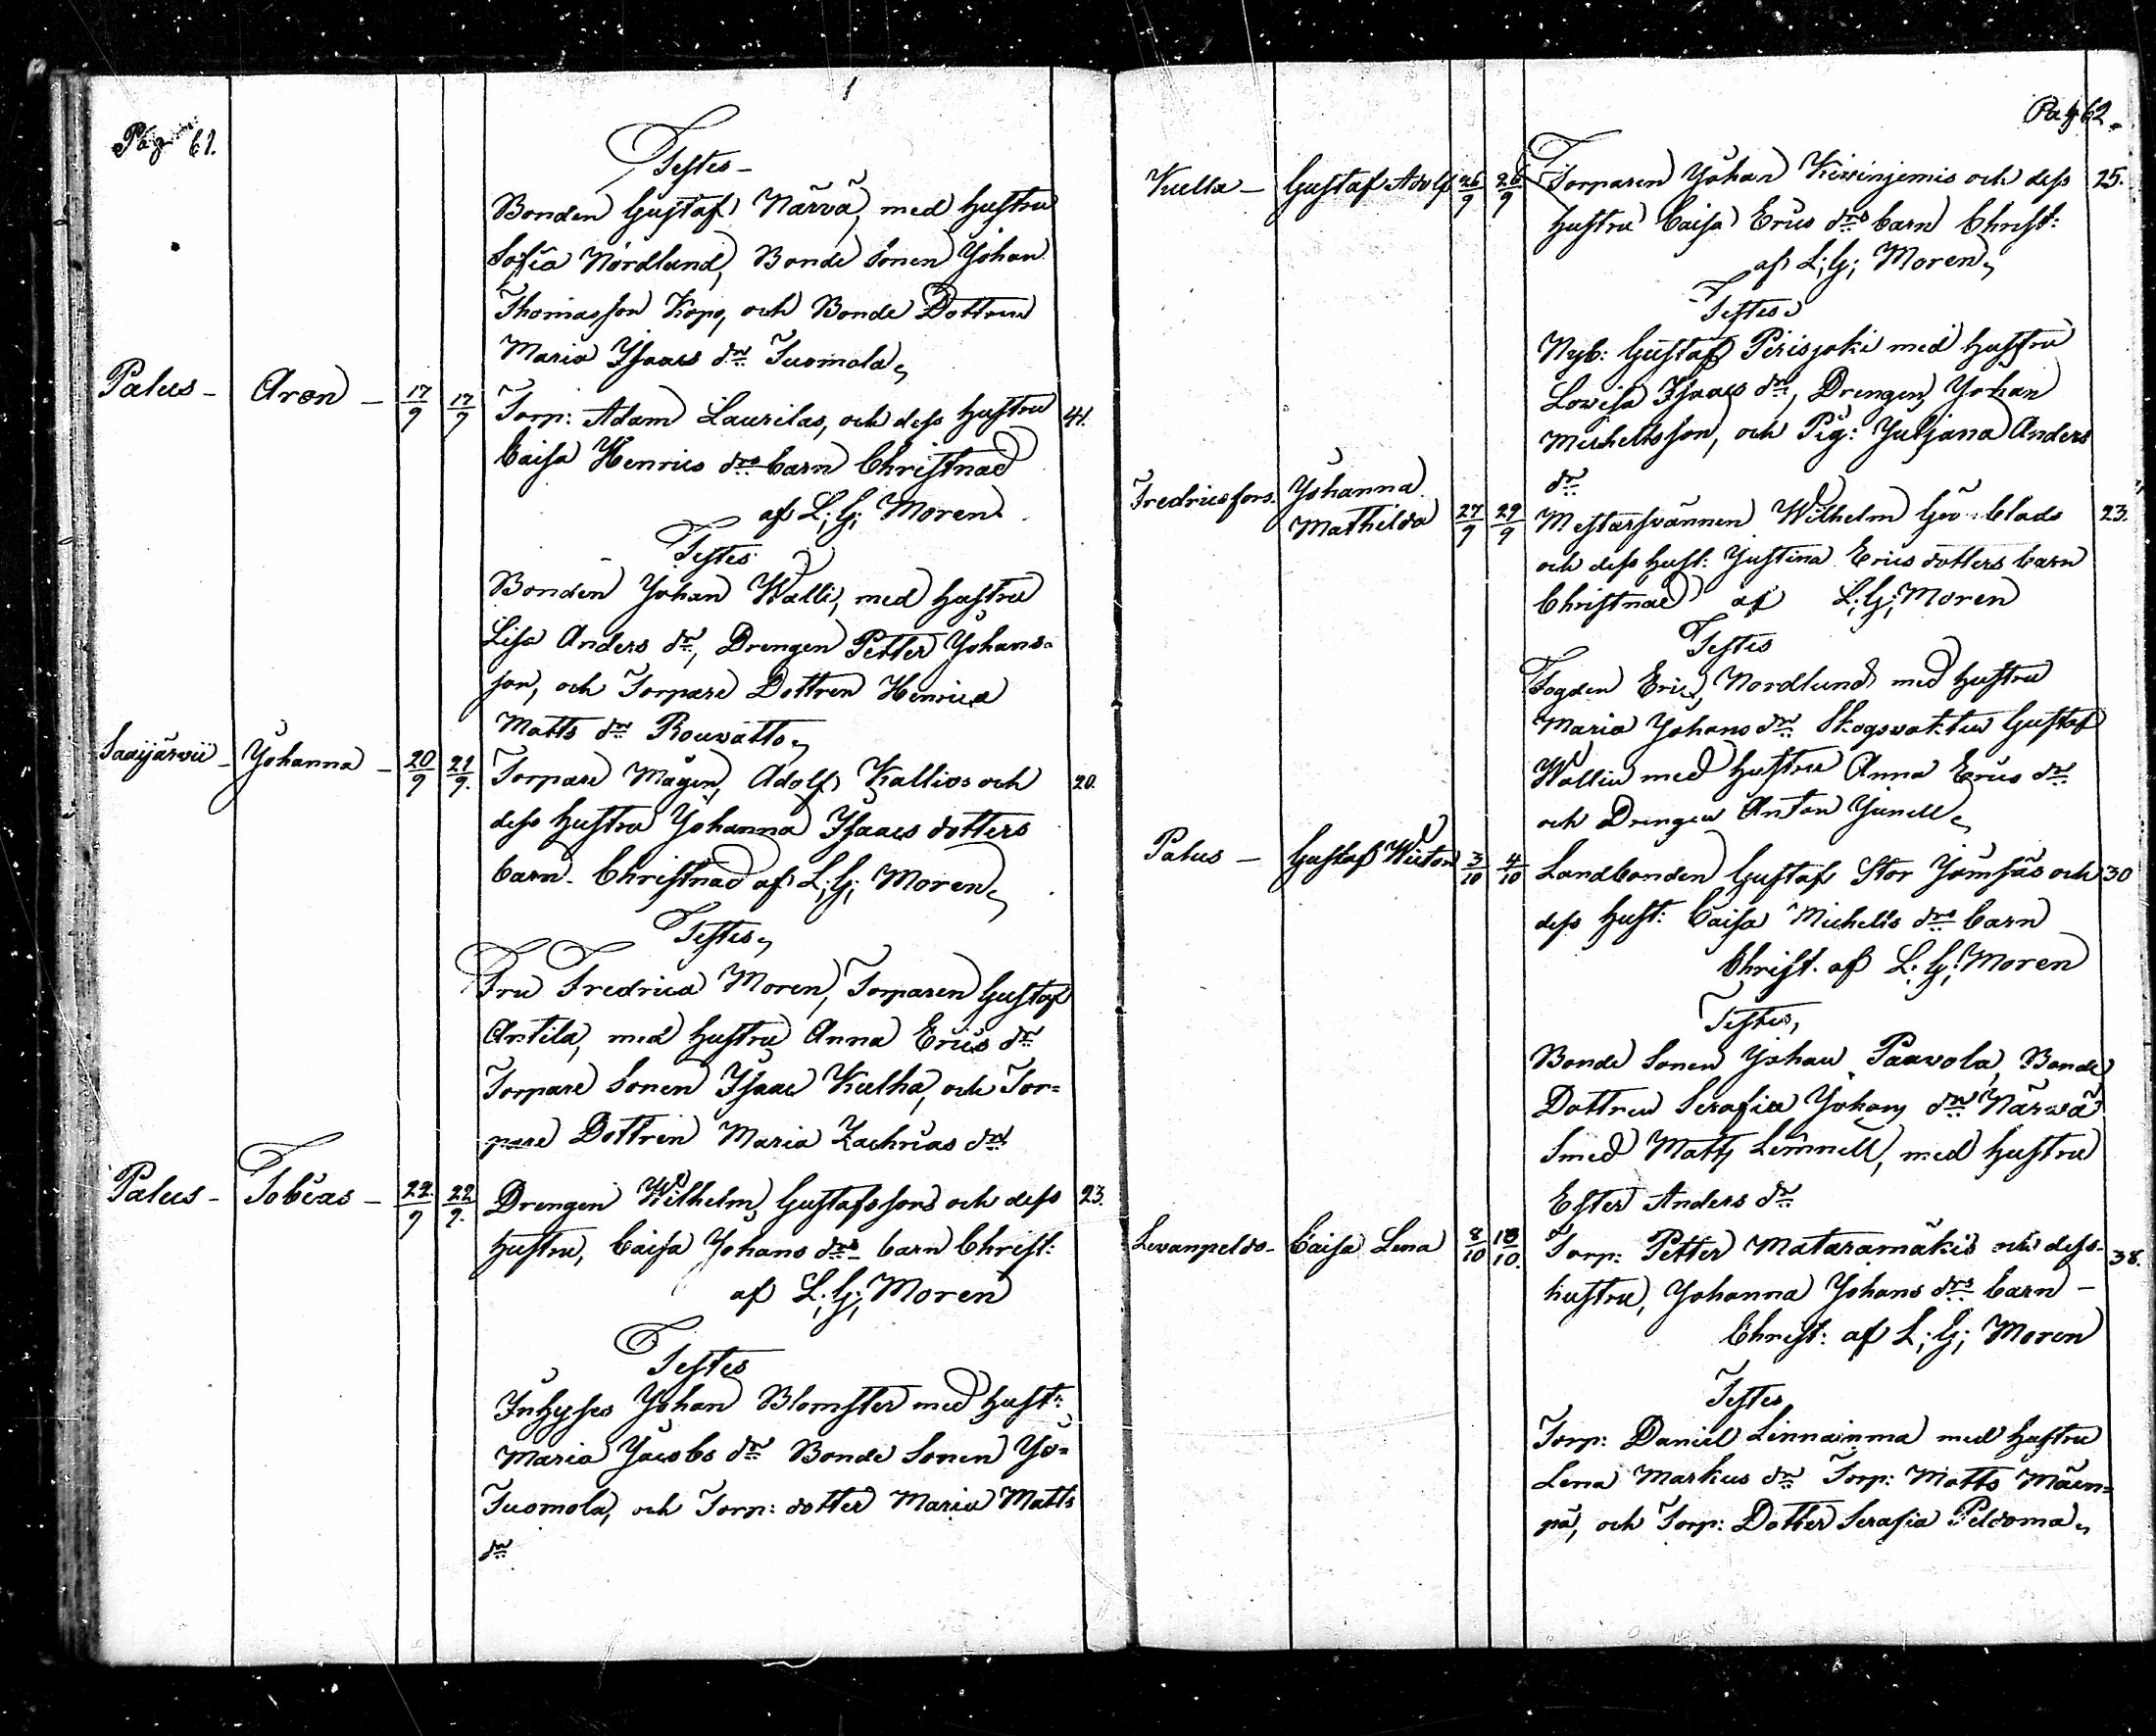 Pag 61.
Testes
Bonden Gustaf Närvä, med hustru
Sofia Nordlund, Bonde Sonen Johan
Thomasson Kopo, och Bonde Dottren
Maria Isaacs dr Tuomola,
Palus - Aron - 17/9 17/9 Torp: Adam Laurilas, och dess hustru 41.
Caisa Henrics drs barn Christnad
af L; G; Moren.
Testes
Bonden Johan Walli, med hustru
Lisa Anders dr, Drengen Petter Johans=
son, och Torpare Dottren Henrica
Matts dr Rouvatto,
Saaijärwii - Johanna - 20/9 21/9. Torpare Mågen, Adolf Kallios och 20.
dess hustru Johanna Isaacs dotters
barn. Christnad af L; G; Moren,
Testes,
Fru Fredrica Moren, Torparen Gustaf
Antila, med hustru Anna Erics dr
Torpare Sonen Isaac Kulha, och Tor=
pare Dottren Maria Zachrias dr
Palus - Tobias - 22/9 22/9. Drengen Wilhelm Gustafssons och dess 23.
hustru, Caisa Johans drs barn Christ:
af L; G; Moren
Testes
Inhyses Johan Blomster med hust:
Maria Jacobs dr Bonde Sonen Jo=
Tuomola, och Torp: dotter Maria Matts
dr
Pag 62.
Kulla - Gustaf Adolf 26/9 26/9 Torparen Johan Kivinjemis och dess 25.
hustru Caisa Erics drs barn Christ:
af L; G; Moren,
Testes
Nyb: Gustaf Perisjoki med hustru
Lovisa Isaacs dr, Drengen, Johan
Michelsson, och Pig: Juljana Anders
dr
Fredricsfors. Johanna
Mathilda 27/9 29/9 Mestarsvännen Wilhelm Gö Clads 23.
och dess hust: Justina Erics dotters barn
Christnad af L; G; Moren
Testes
Fogden Eric Nordlund med hustru
Maria Johans dr Skogsvakten Gustaf
Wallin med hustru Anna Erics dr
och Drengen Anton Junell,
Palus - Gustaf Wictor 3/10 4/10 Landbonden Gustaf Stor Jömsäs och 30
dess hust: Caisa Michels drs barn
Christ. af L. G; Moren
Testes,
Bonde Sonen Johan Paavola, Bonde
Dottren Serafia Johans dr Närwä
Smed Matts Lemnell, med hustru
Ester Anders dr
Levanpeldo - Caisa Lena 8/10 18/10. Torp: Petter Mataramäkis och dess 38.
hustru, Johanna Johans drs barn -
Christ: af L; G; Moren
Testes
Torp: Daniel Linnainma med hustru
Lena Markus dr Torp: Matts Mäen=
pä, och Torp: Dotter Serafia Peldoma,